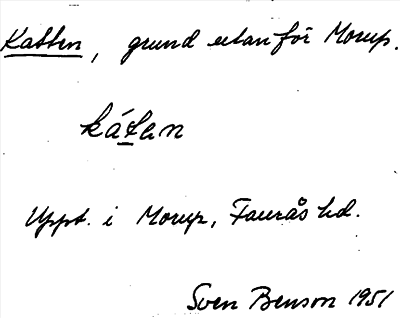 Katten, grund utanför Morup.
kátan
Uppt. i Morup, Faurås hd.
Sven Benson 1951